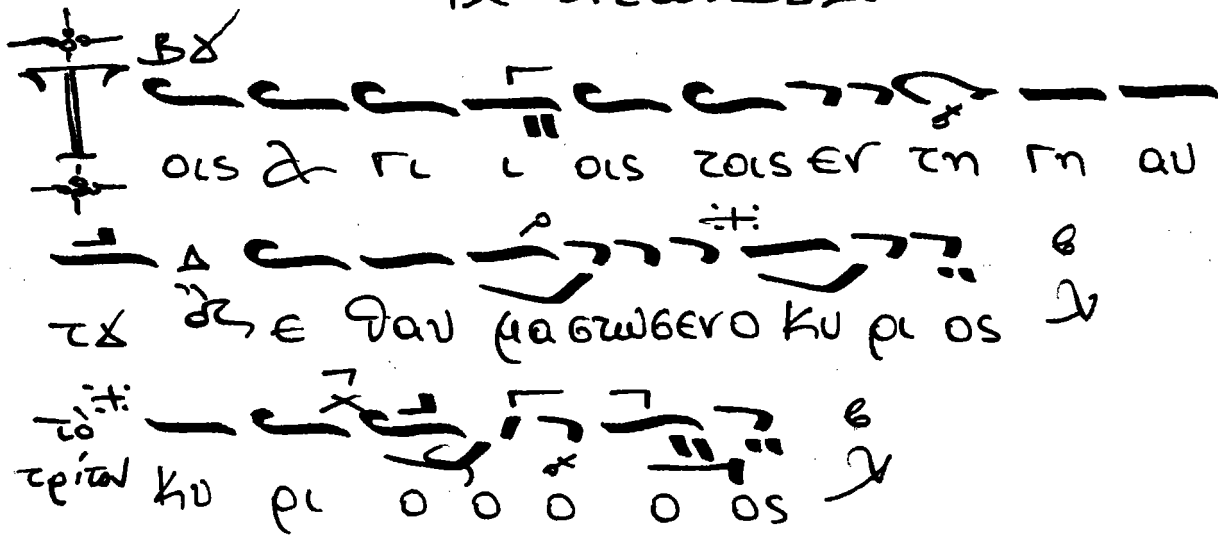 Βȣ
Τ οις α γι ι οις τοις εν τη γη αυ
τȣ Δ ε θαυ μα στωσεν ο Κυ ρι ος
τὸ
τρίτον Κυ ρι ο ο ο ο ος